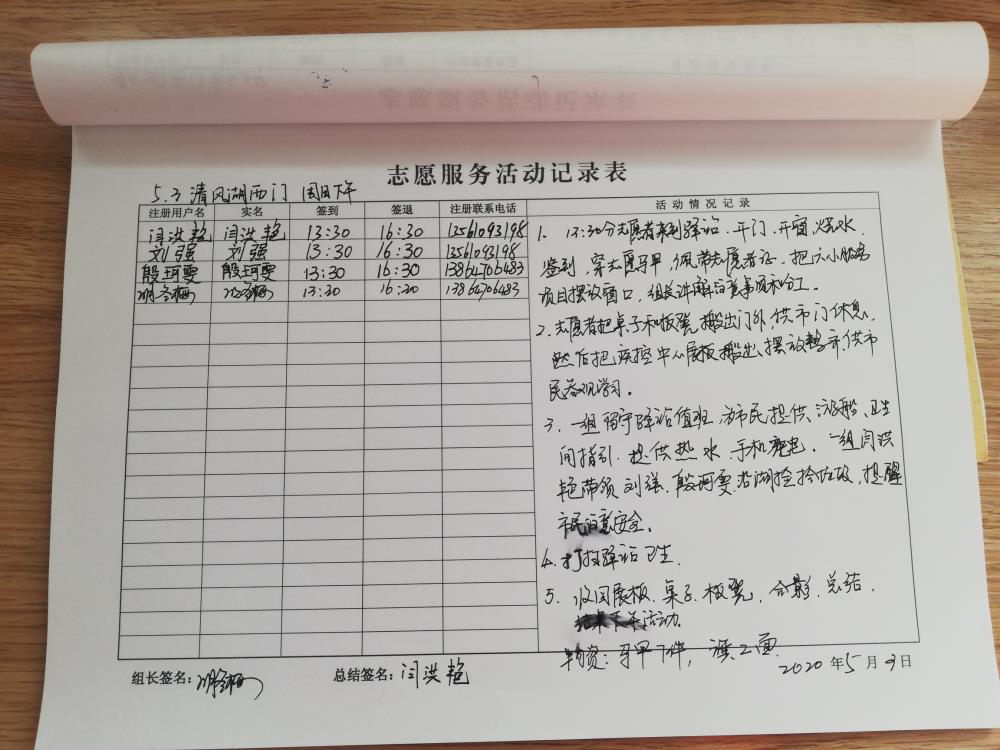 志愿服务活动记录表
5.3 清风湖西门 周日下午
注册用户名 实名 签到 签退 注册联系电话 活动情况记录
闫洪艳 闫洪艳 13:30 16:30 13561093198
刘强 刘强 13:30 16:30 1356109198
殷珂雯 殷珂雯 13:30 16:30 13864706483
13:30 16:30 13864706483
1. 13:30分志愿者来到驿站、开门、开窗、烧水、
签到、穿志愿马甲，佩带志愿者证、把六小服务
项目摆放窗口，组长讲解注意事项和分工。
2. 志愿者把桌子和板凳搬出门外，供市门休息、
然后把疾控中心展板搬出、摆放整齐，供市
民参观学习。
3. 一组留守驿站值班，为市民提供、游船、卫生
间指引、提供热水、手机充电、一组闫洪
艳带领刘强、殷珂雯、沿湖捡拾垃圾，提醒
市民注意安全。
4. 打扫驿站卫生、
5. 收回展板、桌子、板凳，合影、总结、
活动。
物资：马甲7件，旗2面
组长签名：
总结签名：闫洪艳
2020年5月3日